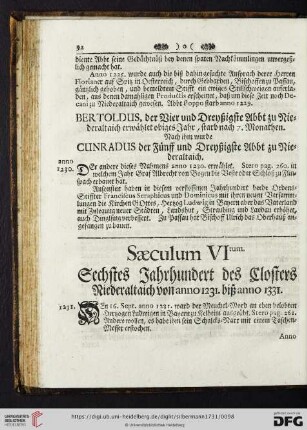 92 ) o (
diente Abbt seine Gedächtnuß bey denen späten Nachkömmlingen unvergeß-
lich gemacht hat.
Anno 1226. wurde auch die biß dahin gesuchte Ansprach derer Herren
Florianer auf Spitz in Oesterreich, durch Gebhardum, Bischoffen zu Passau,
gäntzlich gehoben, und bemeldtem Stifft ein ewiges Stillschweigen aufferla-
den, aus denen damahligen Pontificalis erscheinet, daß um diese Zeit noch De-
cani zu Niederaltaich gewesen. Abbt Poppo starb anno 1229.
BERTOLDUS, der Vier und Dreyßigste Abbt zu Nie-
deraltaich erwählet obiges Jahr, starb nach 7. Monathen.
Nach ihm wurde
CUNRADUS der Fünff und Dreyßigste Abbt zu Nie-
deraltaich.
anno
1230. Der andere dieses Nahmens anno 1230. erwählet. Stero pag. 260. in
welchem Jahr Graf Albrecht von Bogen die Vöste oder Schloß zu Fin-
sach erbauet hat.
Ansonsten haben in diesem verflossenen Jahrhundert beede Ordens-
Stiffter Franciscus Seraphicus und Dominicus mit ihren neuen Versammlun-
gen die Kirchen GOttes, Hertzog Ludwig in Bayern aber das Vatterland
mit Erbauung neuer Städten, Landshut, Straubing und Landau erhöhet,
auch Dingolfing verbessert. Zu Passau hat Bischoff Ulrich das Oberhauß an-
gefangen zu bauen.
Sæculum VItum.
Sechstes Jahrhundert des Closters
Niederaltaich von anno 1231. biß anno 1331.
1231. DEn 16. Sept. anno 1231. ward der Meuchel-Mord an dem belobten
Hertzogen Ludwigen in Bayern zu Kelheim ausgeübt. Stero pag. 262.
Andere wollen, es habe ihn sein Schalcks-Narr mit einem Taschen-
Messer erstochen.
Anno
https://digi.ub.uni-heidelberg.de/diglit/silbermann1731/0098
© Universitätsbibliothek Heidelberg
gefördert durch die
DFG